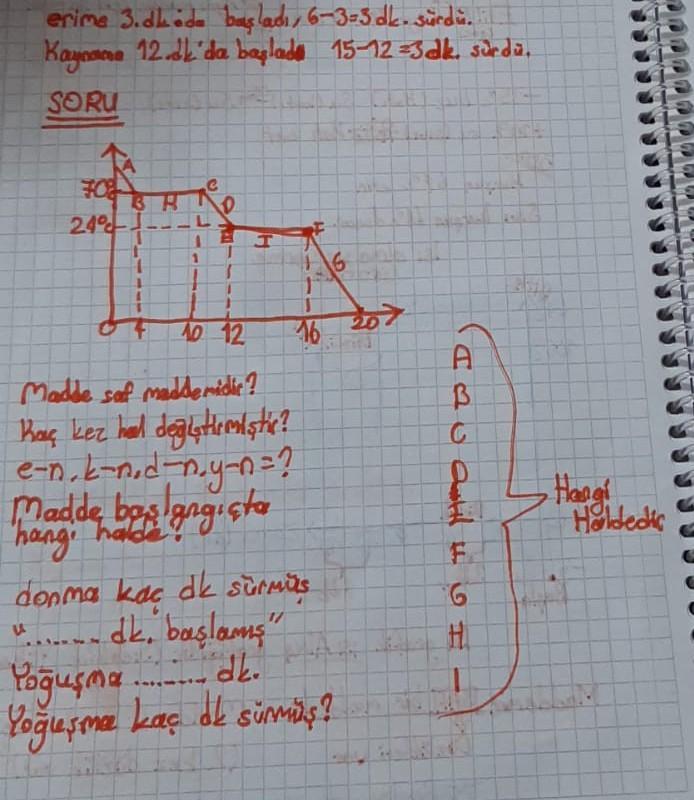 erime 3.dk'da başladı, 6-3=3 dk. sürdü.
Kaynama 12.dk'da başladı 15-12=3 dk. sürdü.
SORU
A
70°
B H C
D
24°
E I F
G
0 4 10 12 16 20
Madde saf maddemidir?
Kaç kez hal değiştirmiştir?
e-n, k-n, d-n, y-n=?
Madde başlangıçta
hangi halde?
donma kaç dk sürmüş
"........ dk. başlamış"
Yoğuşma ......... dk.
Yoğuşma kaç dk sürmüş?
A
B
C
D
E
F
G
H
I
Hangi
Haldedir